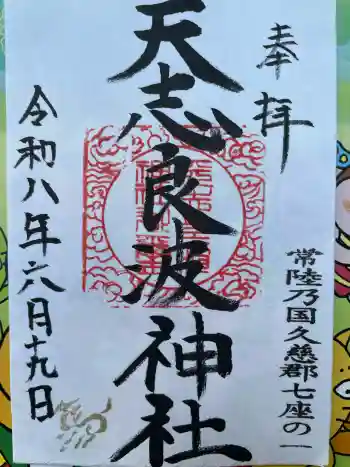 奉拝
常陸乃国久慈郡七座の一
天志良波神社
令和八年六月十九日